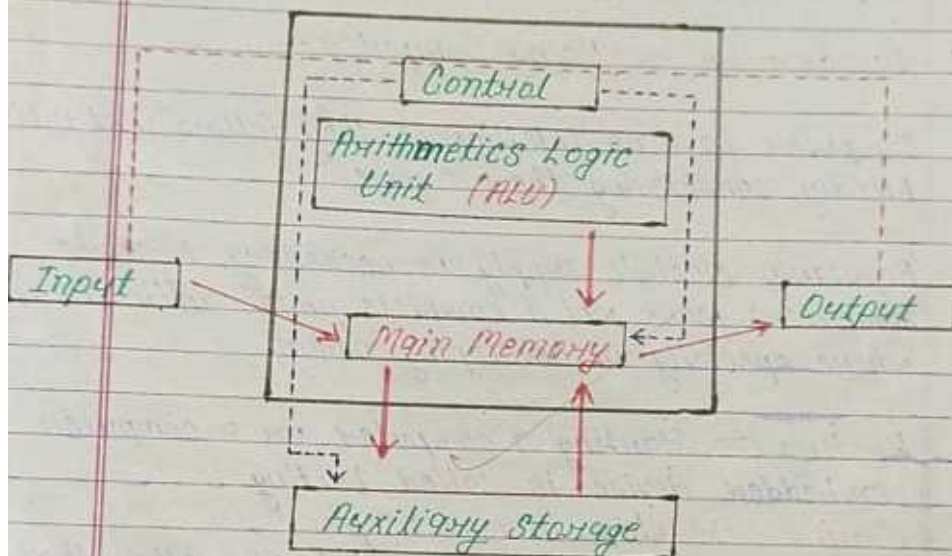 Control
Arithmetics Logic
Unit (ALU)
Input
Output
Main Memory
Auxiliary Storage